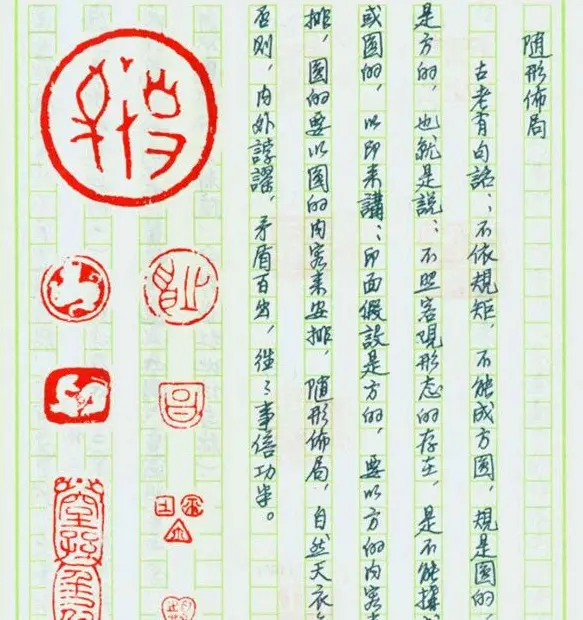 随形佈局
古老有句話：不依規矩，不能成方圓，規是圓的，
是方的，也就是説：不照客观形态的存在，是不能
或圓的，以印来講：印面假設是方的，要以方的内容
排，圓的要以圓的内容来安排，随形佈局，自然天衣
否則，内外諄謣，矛盾百出，往〻事倍功半。